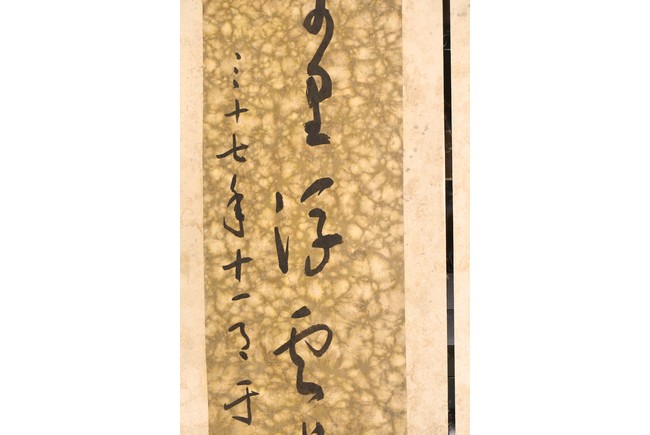 里浮雲
三十七年十一月于